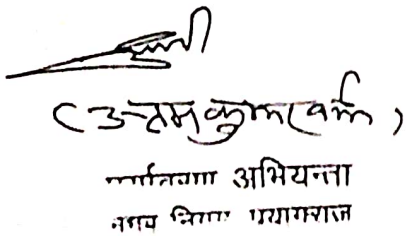 (उत्तम कुमार वर्मा)
अभियन्ता
नगर निगम प्रयागराज